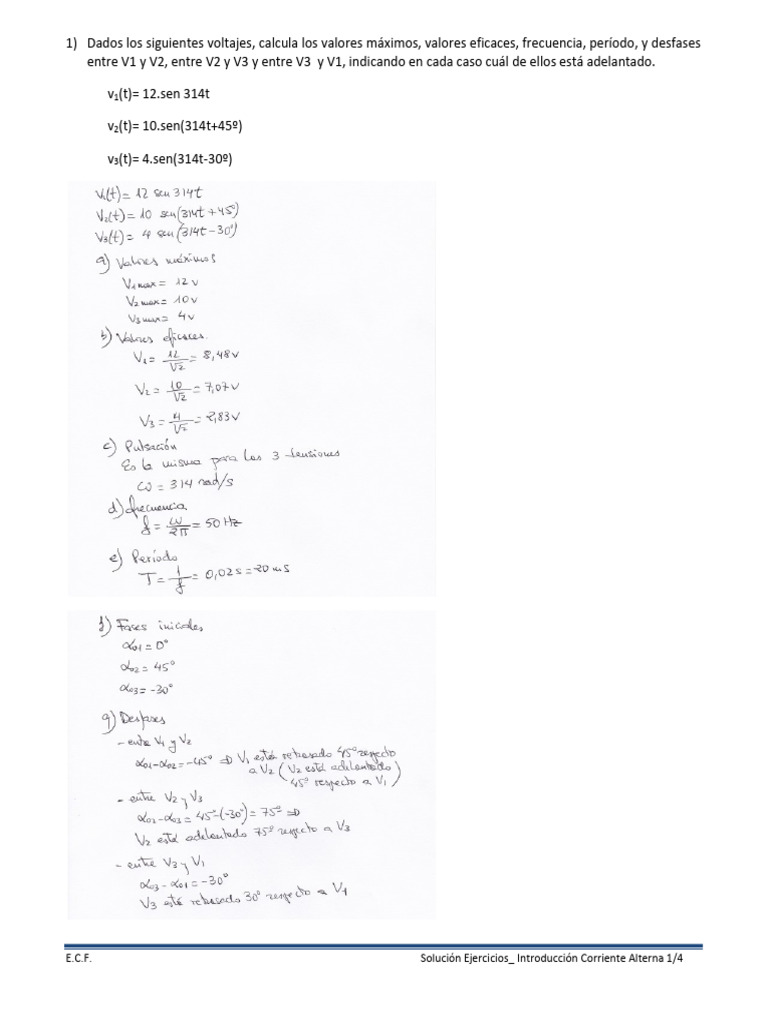 1) Dados los siguientes voltajes, calcula los valores máximos, valores eficaces, frecuencia, período, y desfases
entre V1 y V2, entre V2 y V3 y entre V3 y V1, indicando en cada caso cuál de ellos está adelantado.
v₁(t)= 12.sen 314t
v₂(t)= 10.sen(314t+45º)
v₃(t)= 4.sen(314t-30º)
V₁(t)= 12 sen 314t
V₂(t)= 10 sen(314t + 45º)
V₃(t)= 4 sen(314t - 30º)
a) Valores máximos
V₁max = 12 v
V₂max = 10 v
V₃max = 4 v
b) Valores eficaces.
V₁ = 12/√2 = 8,48 v
V₂ = 10/√2 = 7,07 v
V₃ = 4/√2 = 2,83 v
c) Pulsación
Es la misma para las 3 tensiones
ω = 314 rad/s
d) frecuencia
f = ω/2π = 50 Hz
e) Período
T = 1/f = 0,02 s = 20 ms
f) Fases iniciales
α₀₁ = 0º
α₀₂ = 45º
α₀₃ = -30º
g) Desfases
- entre V₁ y V₂
α₀₁-α₀₂ = -45º ⇒ V₁ está retrasado 45º respecto
a V₂ (V₂ está adelantado
45º respecto a V₁)
- entre V₂ y V₃
α₀₂-α₀₃ = 45º-(-30º) = 75º ⇒
V₂ está adelantado 75º respecto a V₃
- entre V₃ y V₁
α₀₃-α₀₁ = -30º
V₃ está retrasado 30º respecto a V₁
E.C.F. Solución Ejercicios_ Introducción Corriente Alterna 1/4